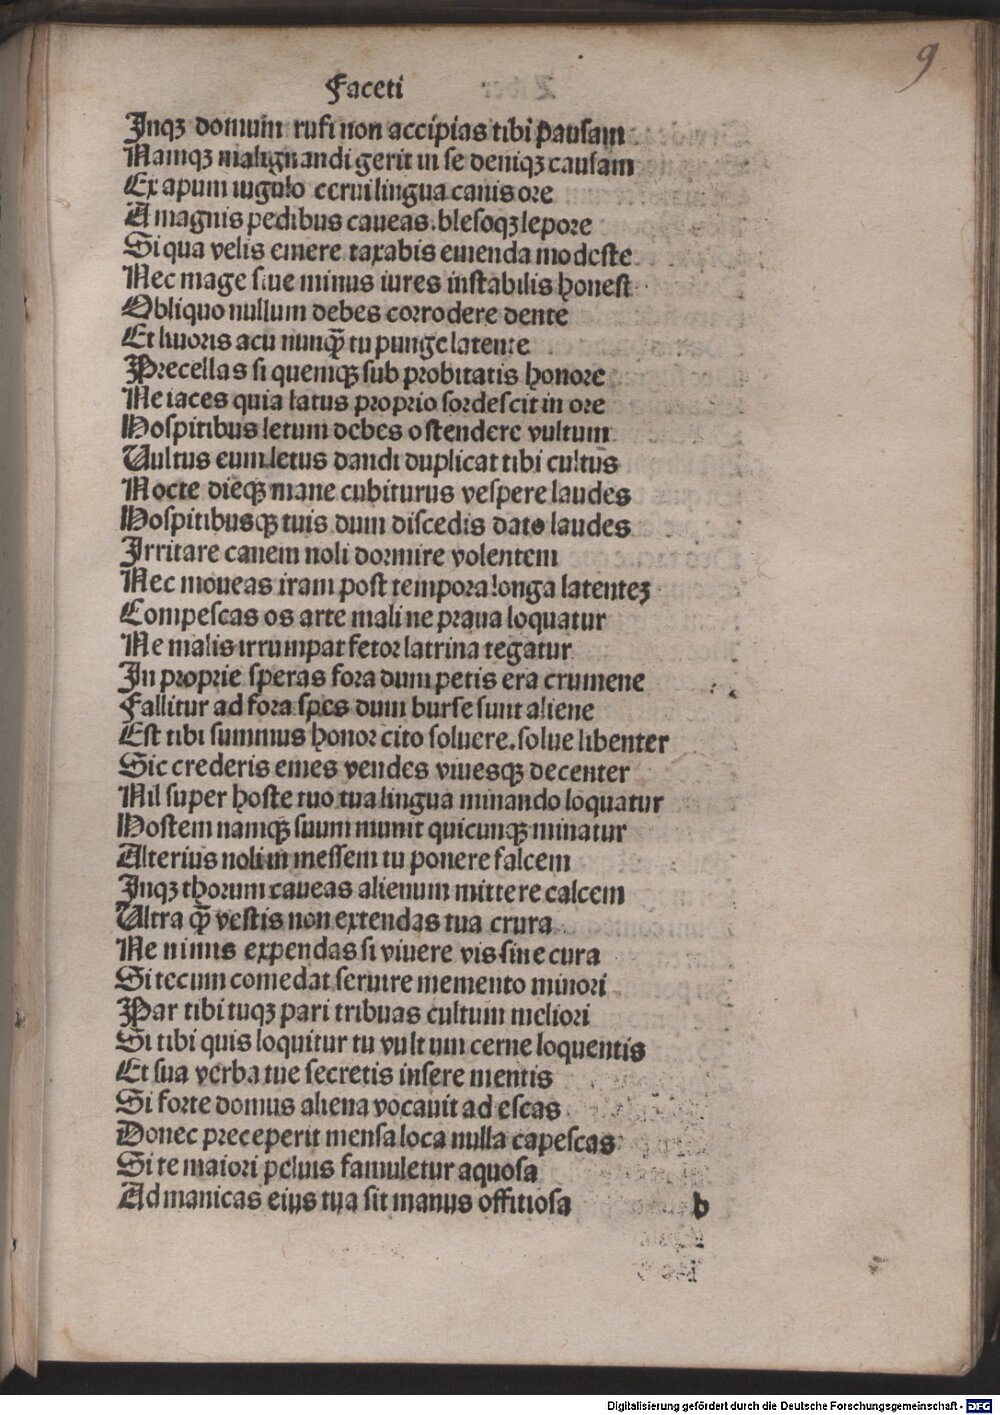 9
Faceti
Inqꝫ domum rufi non accipias tibi pausam
Namqꝫ malignandi gerit in se deniqꝫ causam
Ex apum iugulo cerui lingua canis ore
A magnis pedibus caueas.blesoqꝫ lepore
Si qua velis emere taxabis emenda modeste
Nec mage siue minus iures instabilis honest
Obliquo nullum debes corrodere dente
Et liuoris acu nunq̃ tu punge latente
Precellas si quemqꝫ sub probitatis honore
Ne iaces quia latus proprio sordescit in ore
Hospitibus letum debes ostendere vultum
Uultus eum letus dandi duplicat tibi cultus
Nocte dieqꝫ mane cubiturus vespere laudes
Hospitibusqꝫ tuis dum discedis dato laudes
Irritare canem noli dormire volentem
Nec moueas iram post tempora longa latenteꝫ
Compescas os arte mali ne praua loquatur
Ne malis irrumpat fetor latrina tegatur
In proprie speras fora dum petis era crumene
Fallitur ad fora spes dum burse sunt aliene
Est tibi summus honor cito soluere.solue libenter
Sic crederis emes vendes viuesqꝫ decenter
Nil super hoste tuo tua lingua minando loquatur
Hostem namqꝫ suum munit quicunqꝫ minatur
Alterius noli in messem tu ponere falcem
Inqꝫ thorum caueas alienum mittere calcem
Ultra q̃ vestis non extendas tua crura
Ne nimis expendas si viuere vis sine cura
Si tecum comedat seruire memento minori
Par tibi tuqꝫ pari tribuas cultum meliori
Si tibi quis loquitur tu vultum cerne loquentis
Et sua verba tue secretis insere mentis
Si forte domus aliena vocauit ad escas
Donec preceperit mensa loca nulla capescas
Si te maiori peluis famuletur aquosa
Ad manicas eius tua sit manus offitiosa
b
Digitalisierung gefördert durch die Deutsche Forschungsgemeinschaft - DFG